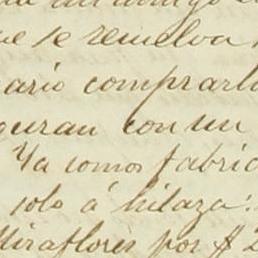 un amigo
se remelva
ario comprarl
guran con un
Ya somos fabric
solo á hilaza:
Miraflores por $ 2